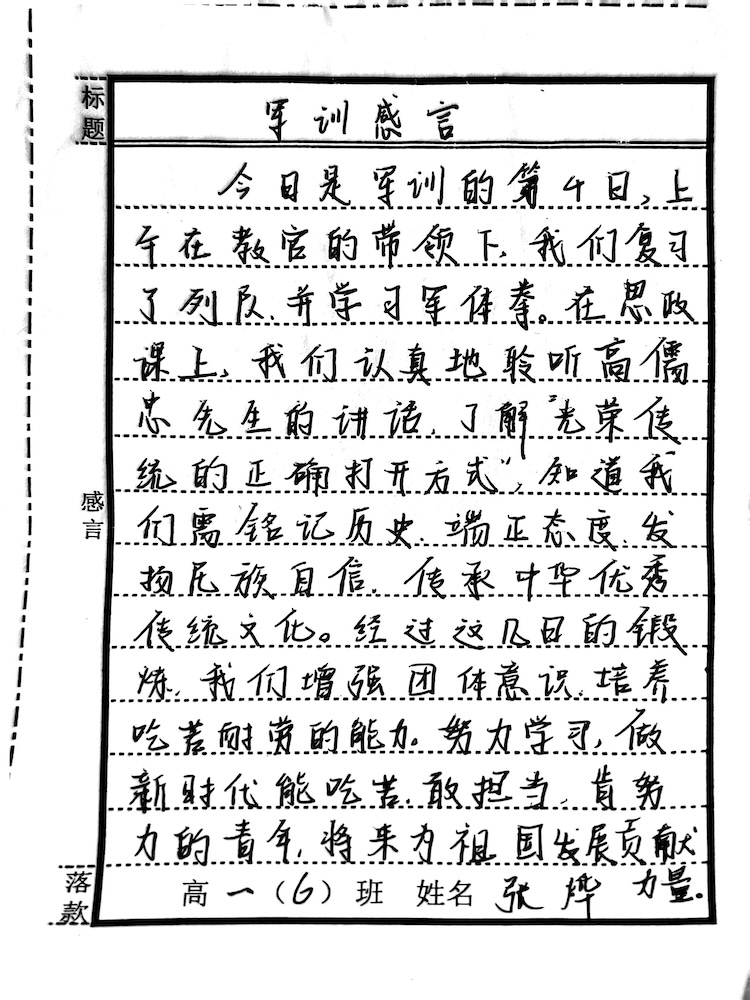 标题
军训感言
今日是军训的第4日,上
午在教官的带领下,我们复习
了列队,并学习军体拳。在思政
课上,我们认真地聆听高儒
忠先生的讲话,了解“光荣传
统的正确打开方式”,知道我
感言
们需铭记历史,端正态度,发
扬民族自信,传承中华优秀
传统文化。经过这几日的锻
炼,我们增强团体意识,培养
吃苦耐劳的能力。努力学习,做
新时代能吃苦,敢担当,肯努
力的青年,将来为祖国发展贡献
力量。
落款
高一(6)班 姓名 张烨